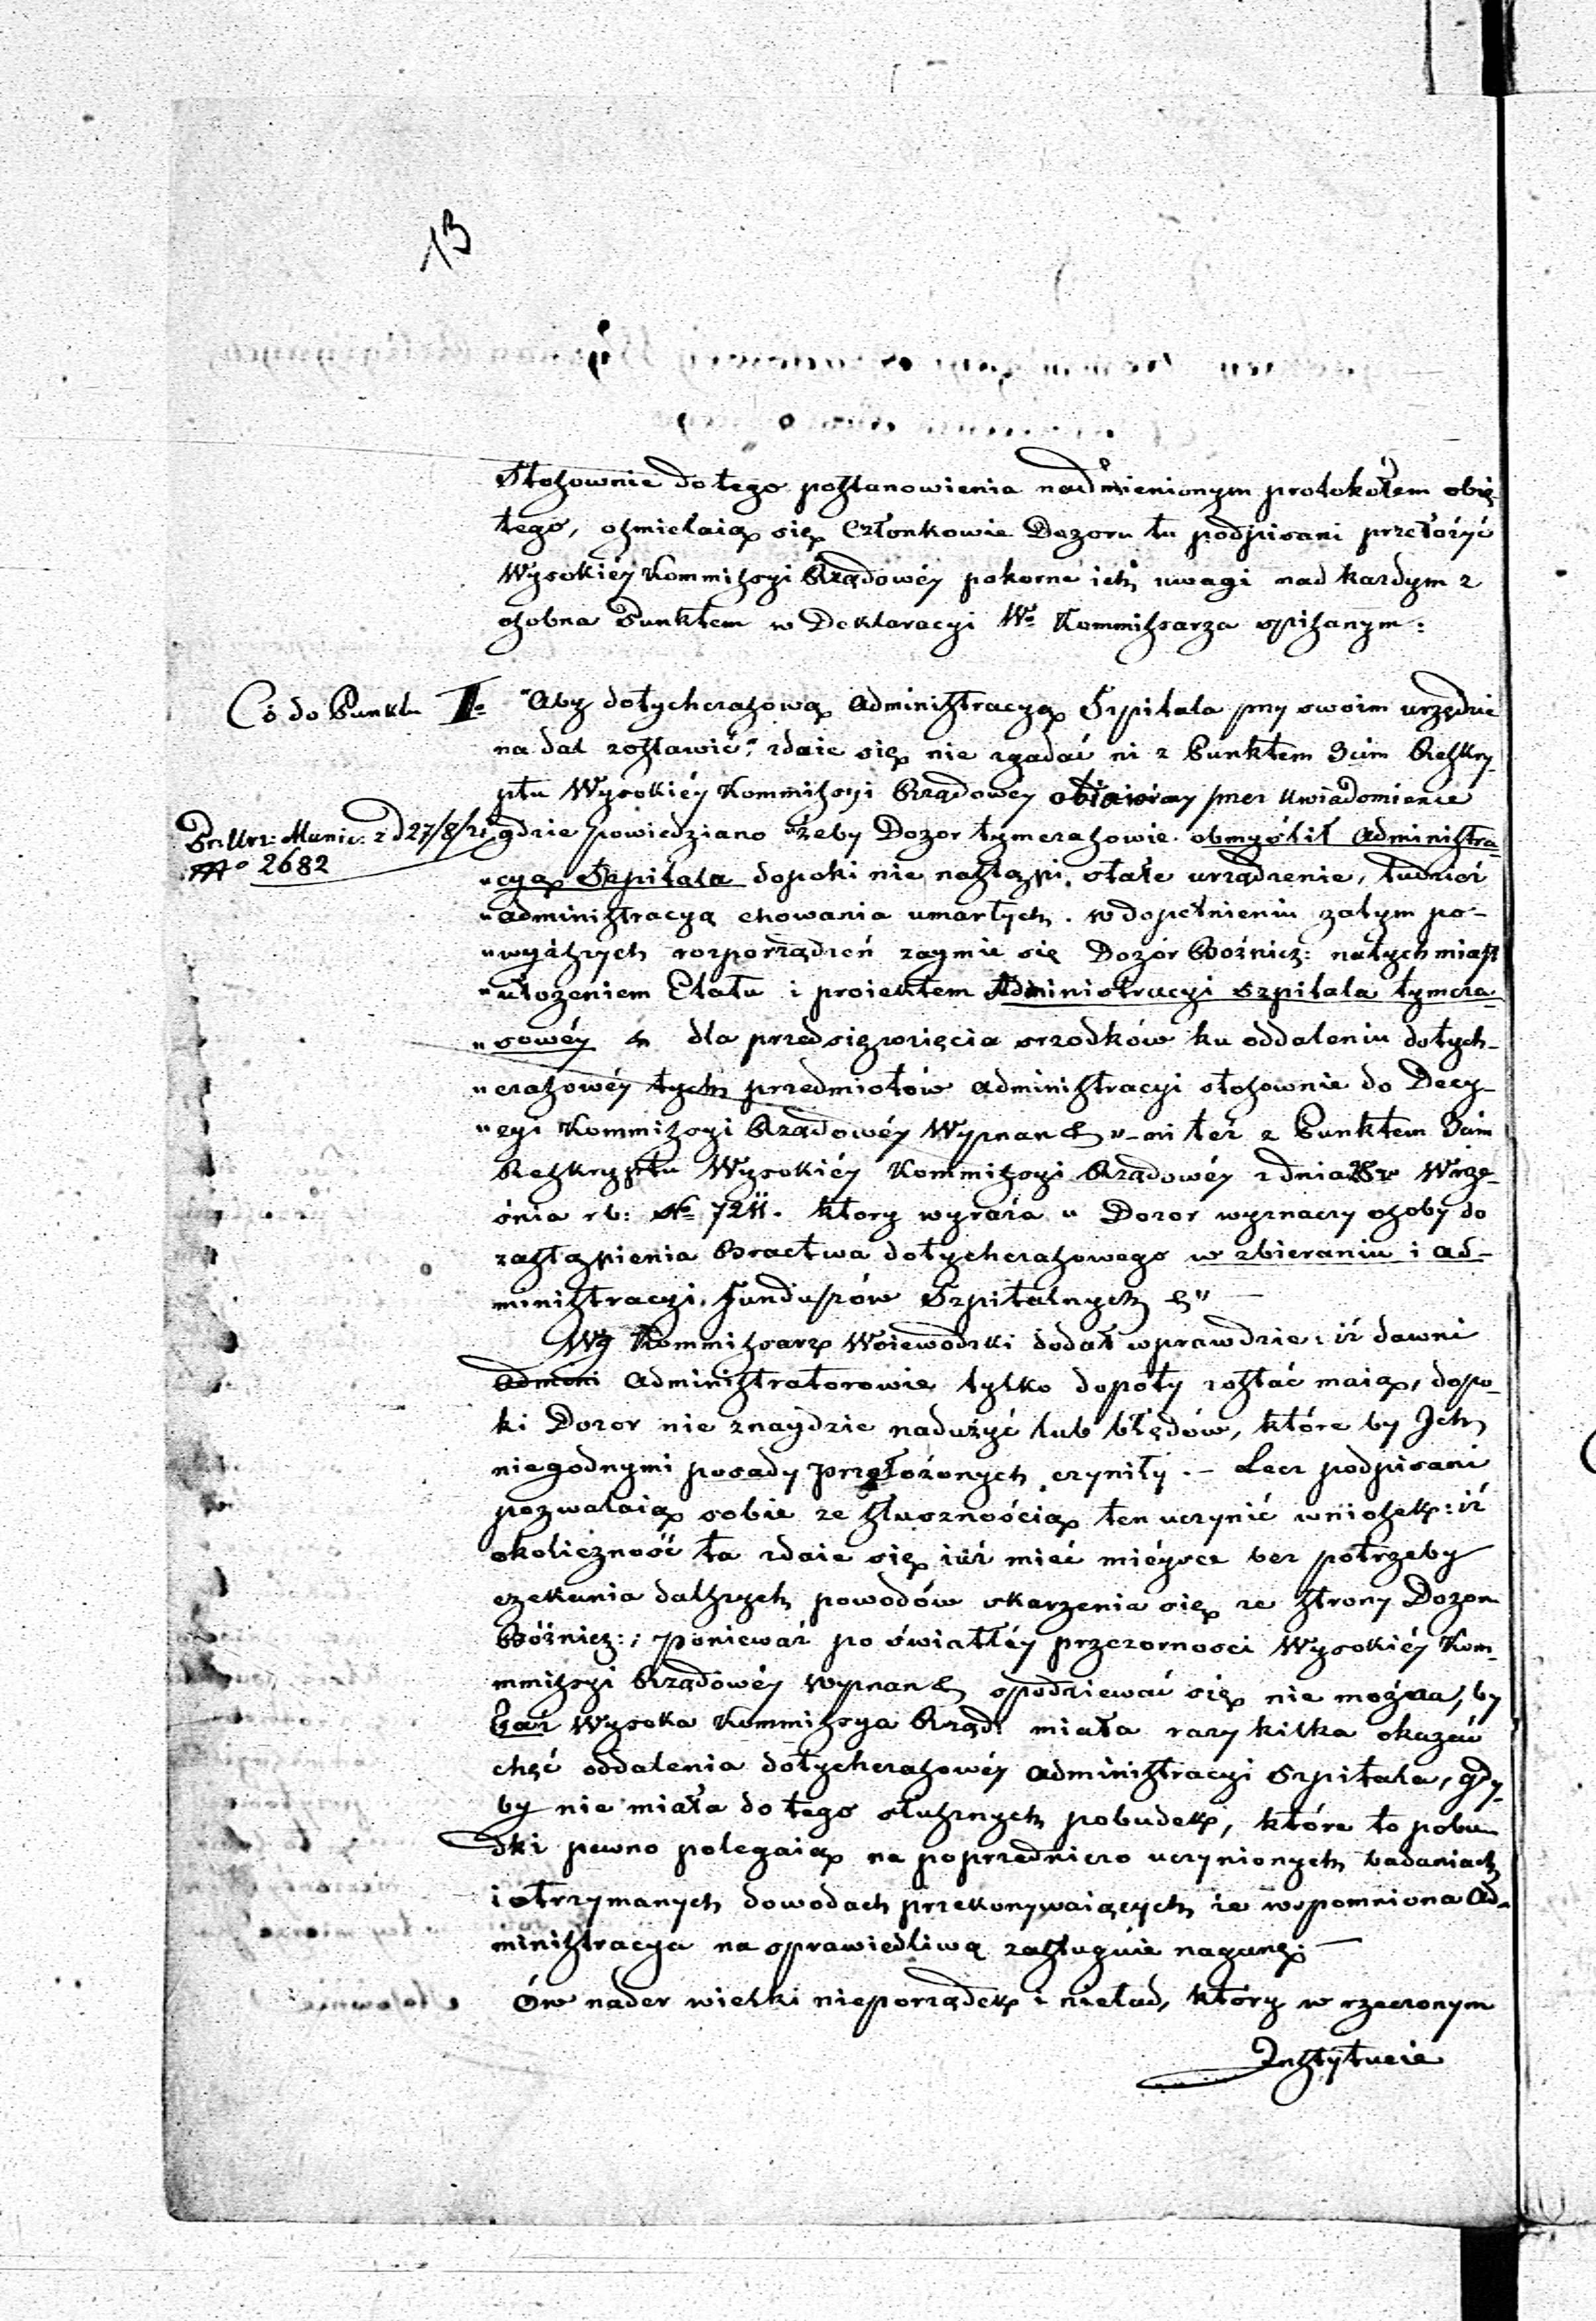 13
Stosownie do tego postanowienia nadmienionym protokółem obię-
tego, osmielaią się Członkowie Dozoru tu podpisani przełożyć
Wysokiéy Kommissyi Rządowéy pokorne ich uwagi nad każdym z
osobna Punktem w Deklaracyi W° Kommissarza spisanym:
Co do Punktu I° "Aby dotychczasową Administracyą Szpitala przy swoim urzędzie
na dal zostawić" zdaie się nie zgadać ni z Punktem 3cim Reskry-
ptu Wysokiéy Kommissyi Rządowéy obiawiony przez Uwiadomienie
Pr. Urz: Munic: z d 27/8/21 gdzie powiedziano "żeby Dozor tymczasowie obmyślił Administra-
N° 2682
"cyą Szpitala dopoki nie nastąpi stałe urządzenie, tudzież
"administracyą chowania umarłych. w dopełnieniu zatym po-
"wyższych rozporządzeń zaymie się Dozór Bóżnicz: natychmiast
"ułozeniem Etatu i proiektem Administracyi szpitala tymcza-
"sowéy & dla przedsięwzięcia srzodków ku oddaleniu dotych-
"czasowéy tych przedmiotów administracyi stosownie do Decy-
"zyi Kommissyi Rządowéy Wyznan &" – ni też z Punktem 3cim
Reskryptu Wysokiéy Kommissyi Rządowéy z dnia Wrze-
śnia r b: N° 7211. ktory wyraża "Dozor wyznaczy osoby do
zastąpienia Bractwa dotychczasowego w zbieraniu i ad-
ministracyi Funduszów Szpitalnych &"
Wy Kommissarz Woiewodzki dodał wprawdzie: iż dawni
Admini Administratorowie tylko dopóty zostać maią, dopo-
ki Dozor nie znaydzie nadużyć lub błędów, któreby Ich
niegodnymi posady przełożonych czyniły. – Lecz podpisani
pozwalaią sobie ze słusznością ten uczynić wniosek: iż
okoliczność ta zdaie się iuż mieć mieysce bez potrzeby
czekania dalszych powodów skarzenia się ze strony Dozoru
Bóżnicz:; ponieważ po światłéy przezornosci Wysokiéy Kom-
mmissyi Rządowéy Wyznan & spodziewać się nie można, by
taż Wysoka Kommissya Rząd: miała razy kilka okazać
chęć oddalenia dotychczasowéy Administracyi Szpitala, gdy-
by nie miała do tego słusznych pobudek, które to pobu-
dki pewno polegaią na poprzedniczo uczynionych badaniach
i otrzymanych dowodach przekonywaiących że wspomniona Ad-
ministracya na sprawiedliwą zasługuie naganę. –
Ów nader wielki nieporządek i nieład, który w rzeczonym
Instytucie